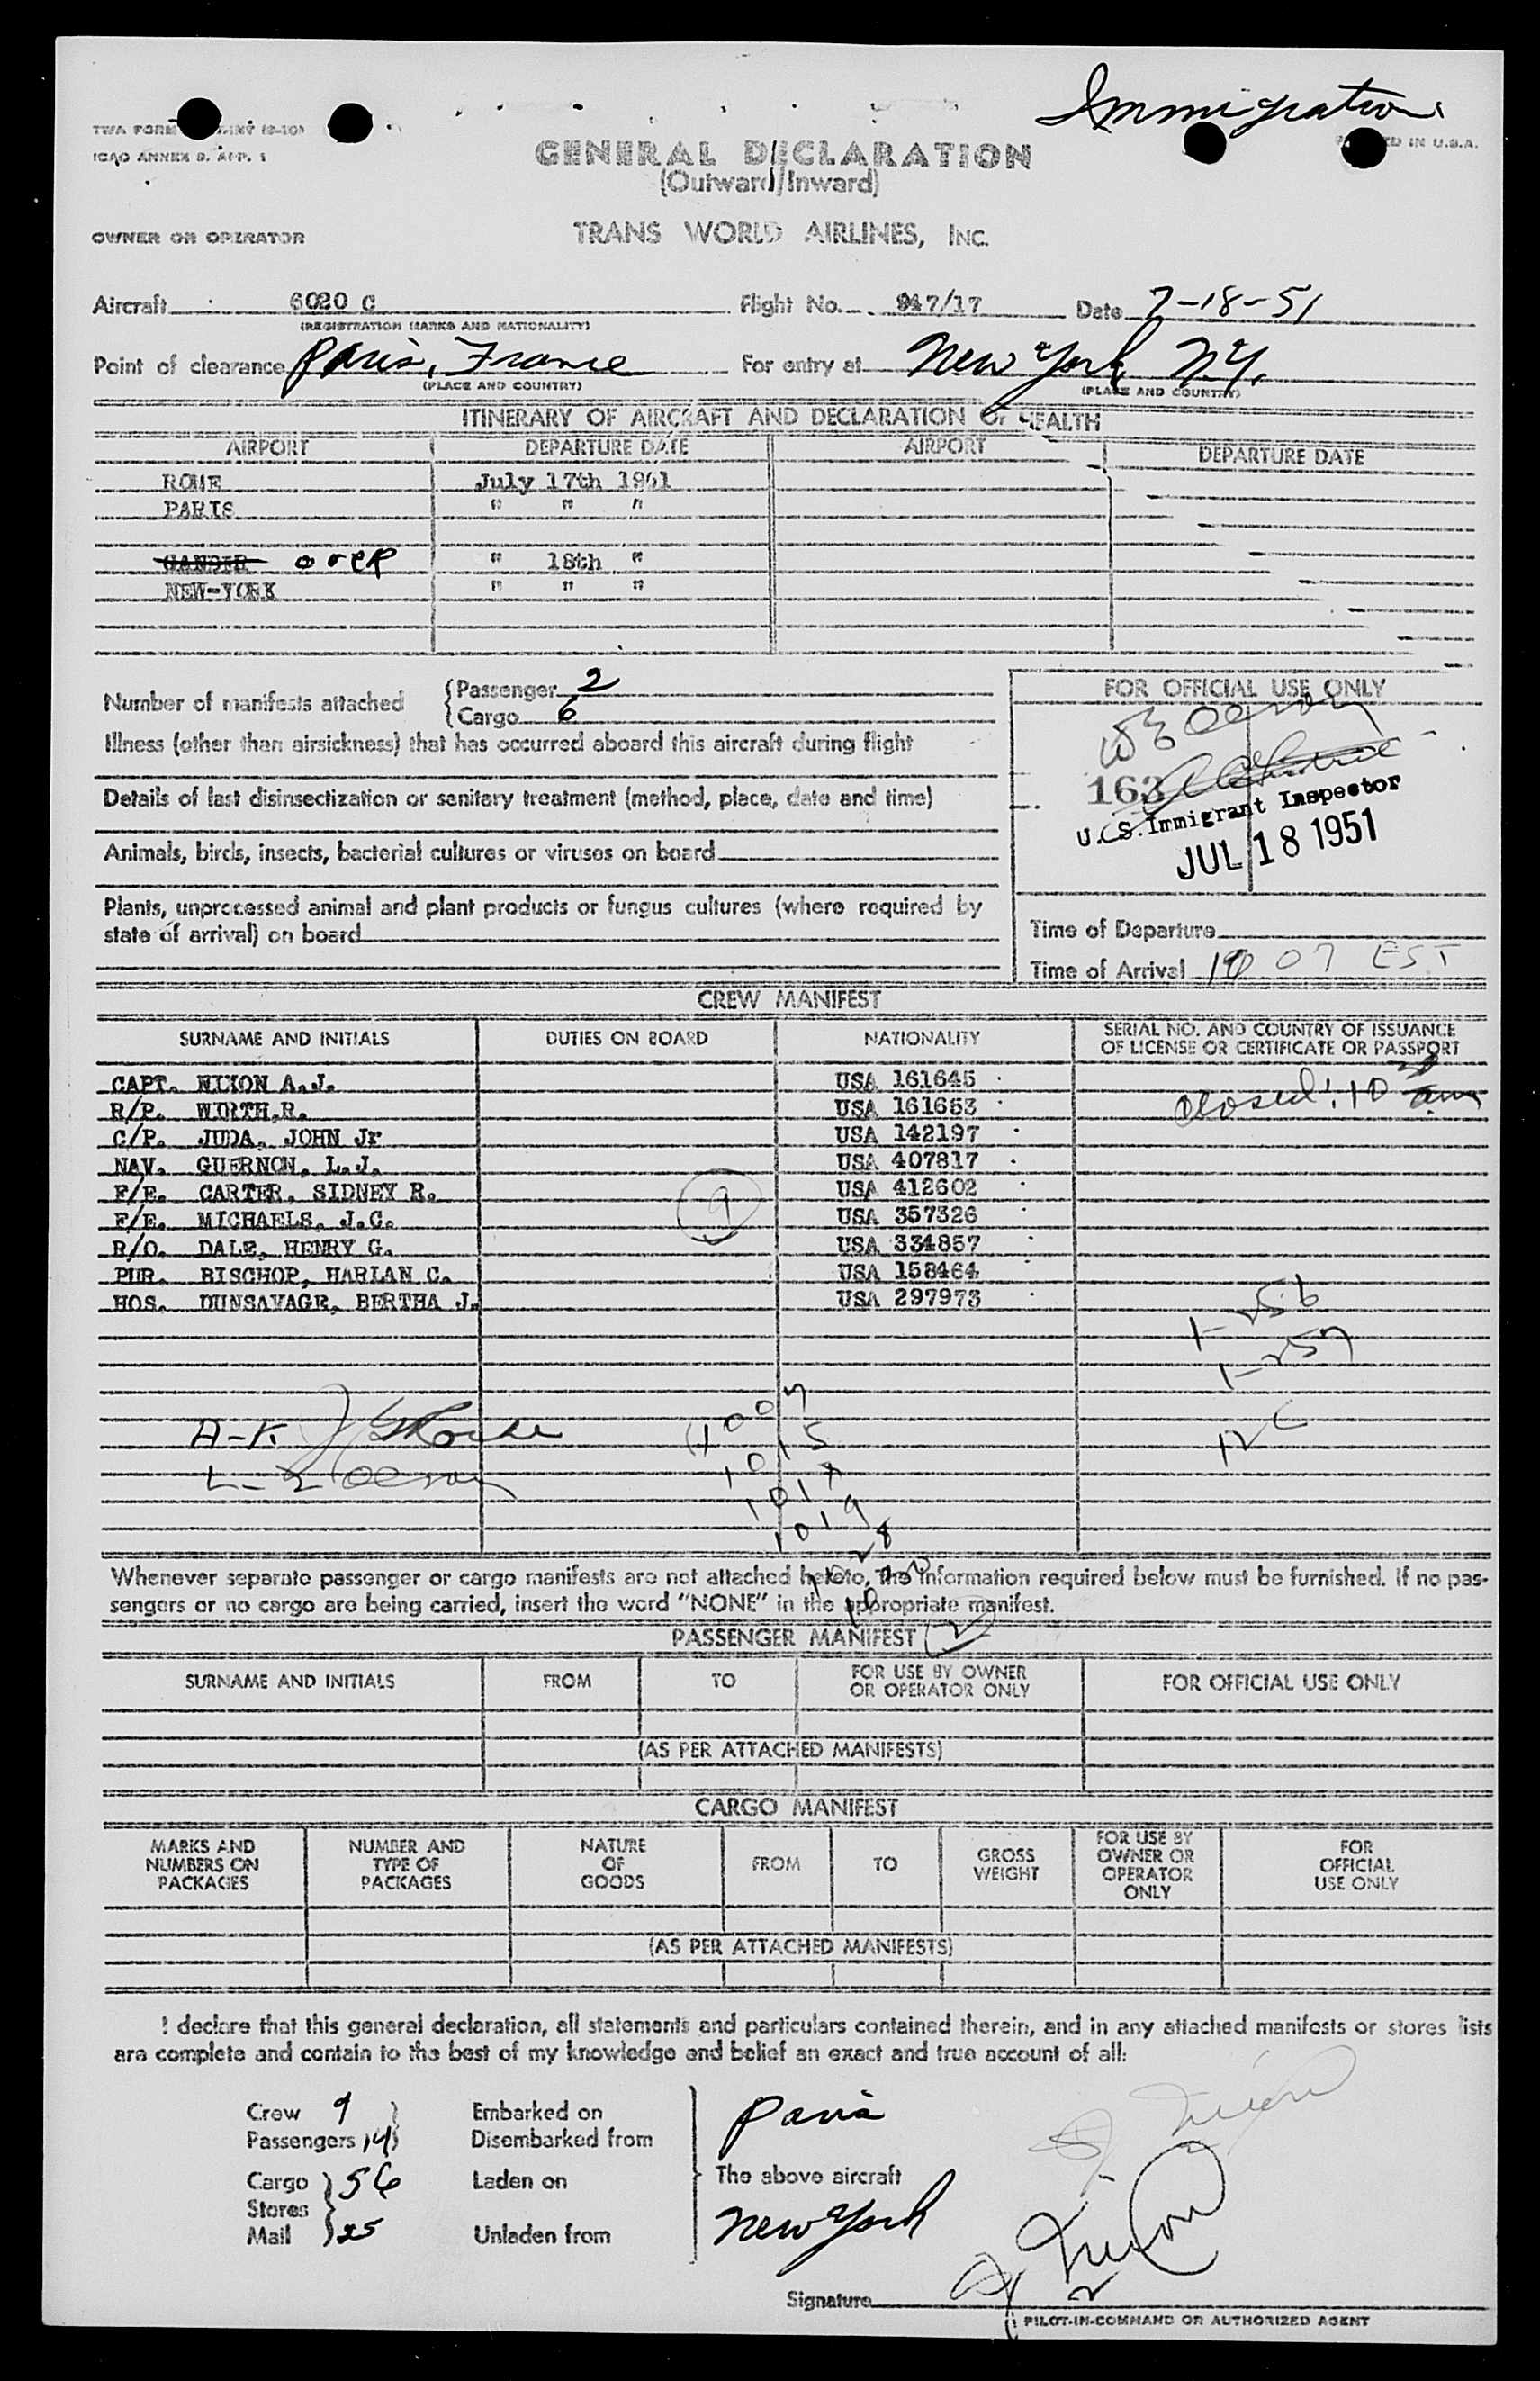 Immigration
TWA FORM
ICAO ANNEX 9, APP. 1
GENERAL DECLARATION
IN U.S.A.
(Outward/Inward)
OWNER OR OPERATOR TRANS WORLD AIRLINES, INC.
Aircraft 6020 C Flight No. 947/17 Date 7-18-51
(REGISTRATION MARKS AND NATIONALITY)
Point of clearance Paris, France For entry at New York N.Y.
(PLACE AND COUNTRY) (PLACE AND COUNTRY)
ITINERARY OF AIRCRAFT AND DECLARATION OF HEALTH
AIRPORT DEPARTURE DATE AIRPORT DEPARTURE DATE
ROME July 17th 1951
PARIS " " "
GANDER over " 18th "
NEW-YORK " " "
Number of manifests attached { Passenger 2
{ Cargo 6
FOR OFFICIAL USE ONLY
Illness (other than airsickness) that has occurred aboard this aircraft during flight
Details of last disinsectization or sanitary treatment (method, place, date and time)
163
U. S. Immigrant Inspector
JUL 18 1951
Animals, birds, insects, bacterial cultures or viruses on board
Plants, unprocessed animal and plant products or fungus cultures (where required by
state of arrival) on board
Time of Departure
Time of Arrival 1007 EST
CREW MANIFEST
SURNAME AND INITIALS DUTIES ON BOARD NATIONALITY SERIAL NO. AND COUNTRY OF ISSUANCE
OF LICENSE OR CERTIFICATE OR PASSPORT
CAPT. NIXON A.J. USA 161645
R/P. WIRTH,R. USA 161653
closed: 10 am
C/P. JUDA, JOHN Jr USA 142197
NAV. GUERNON, L.J. USA 407817
F/E. CARTER, SIDNEY R. USA 412602
9
F/E. MICHAELS, J.C. USA 357326
R/O. DALE, HENRY G. USA 334857
PUR. BISCHOP, HARLAN C. USA 158464
HOS. DUNSAVAGE, BERTHA J. USA 297973
1-256
1-257
A-K 1007
1015
L-Z
1017
1019
Whenever separate passenger or cargo manifests are not attached hereto, the information required below must be furnished. If no pas-
sengers or no cargo are being carried, insert the word "NONE" in the appropriate manifest.
PASSENGER MANIFEST
SURNAME AND INITIALS FROM TO FOR USE BY OWNER
OR OPERATOR ONLY FOR OFFICIAL USE ONLY
(AS PER ATTACHED MANIFESTS)
CARGO MANIFEST
MARKS AND
NUMBERS ON
PACKAGES NUMBER AND
TYPE OF
PACKAGES NATURE
OF
GOODS FROM TO GROSS
WEIGHT FOR USE BY
OWNER OR
OPERATOR
ONLY FOR
OFFICIAL
USE ONLY
(AS PER ATTACHED MANIFESTS)
I declare that this general declaration, all statements and particulars contained therein, and in any attached manifests or stores lists
are complete and contain to the best of my knowledge and belief an exact and true account of all:
Crew 9 Embarked on Paris
Passengers 14 Disembarked from
Cargo 56 Laden on The above aircraft
Stores
Mail 25 Unladen from New York
Signature
PILOT-IN-COMMAND OR AUTHORIZED AGENT